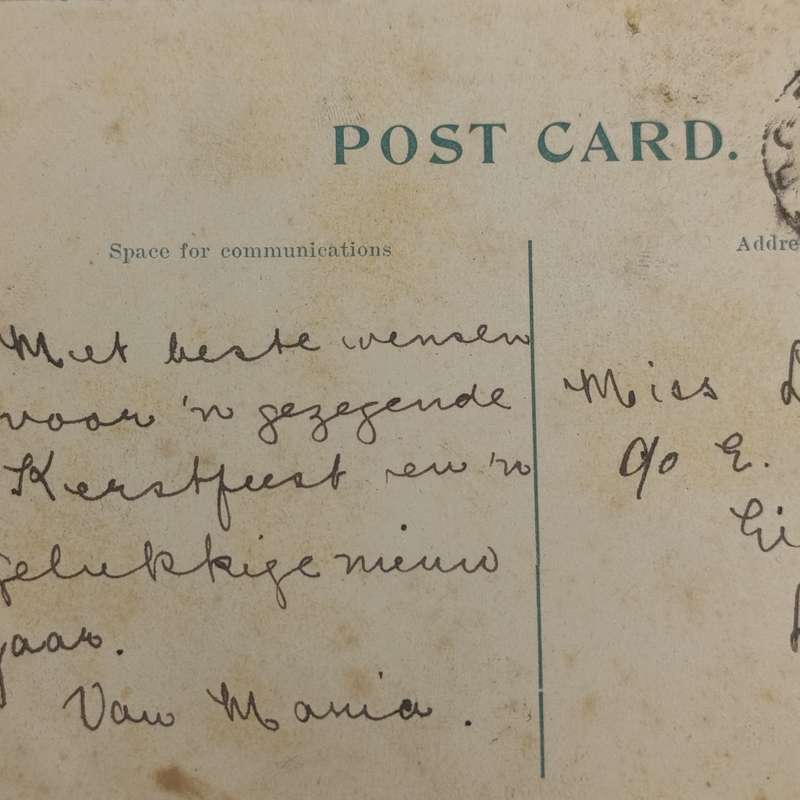 POST CARD.
Space for communications
Addre
Met beste wensen
voor 'n gezegende
Kerstfeest en 'n
gelukkige nieuw
jaar.
Van Maria.
Miss
c/o E.